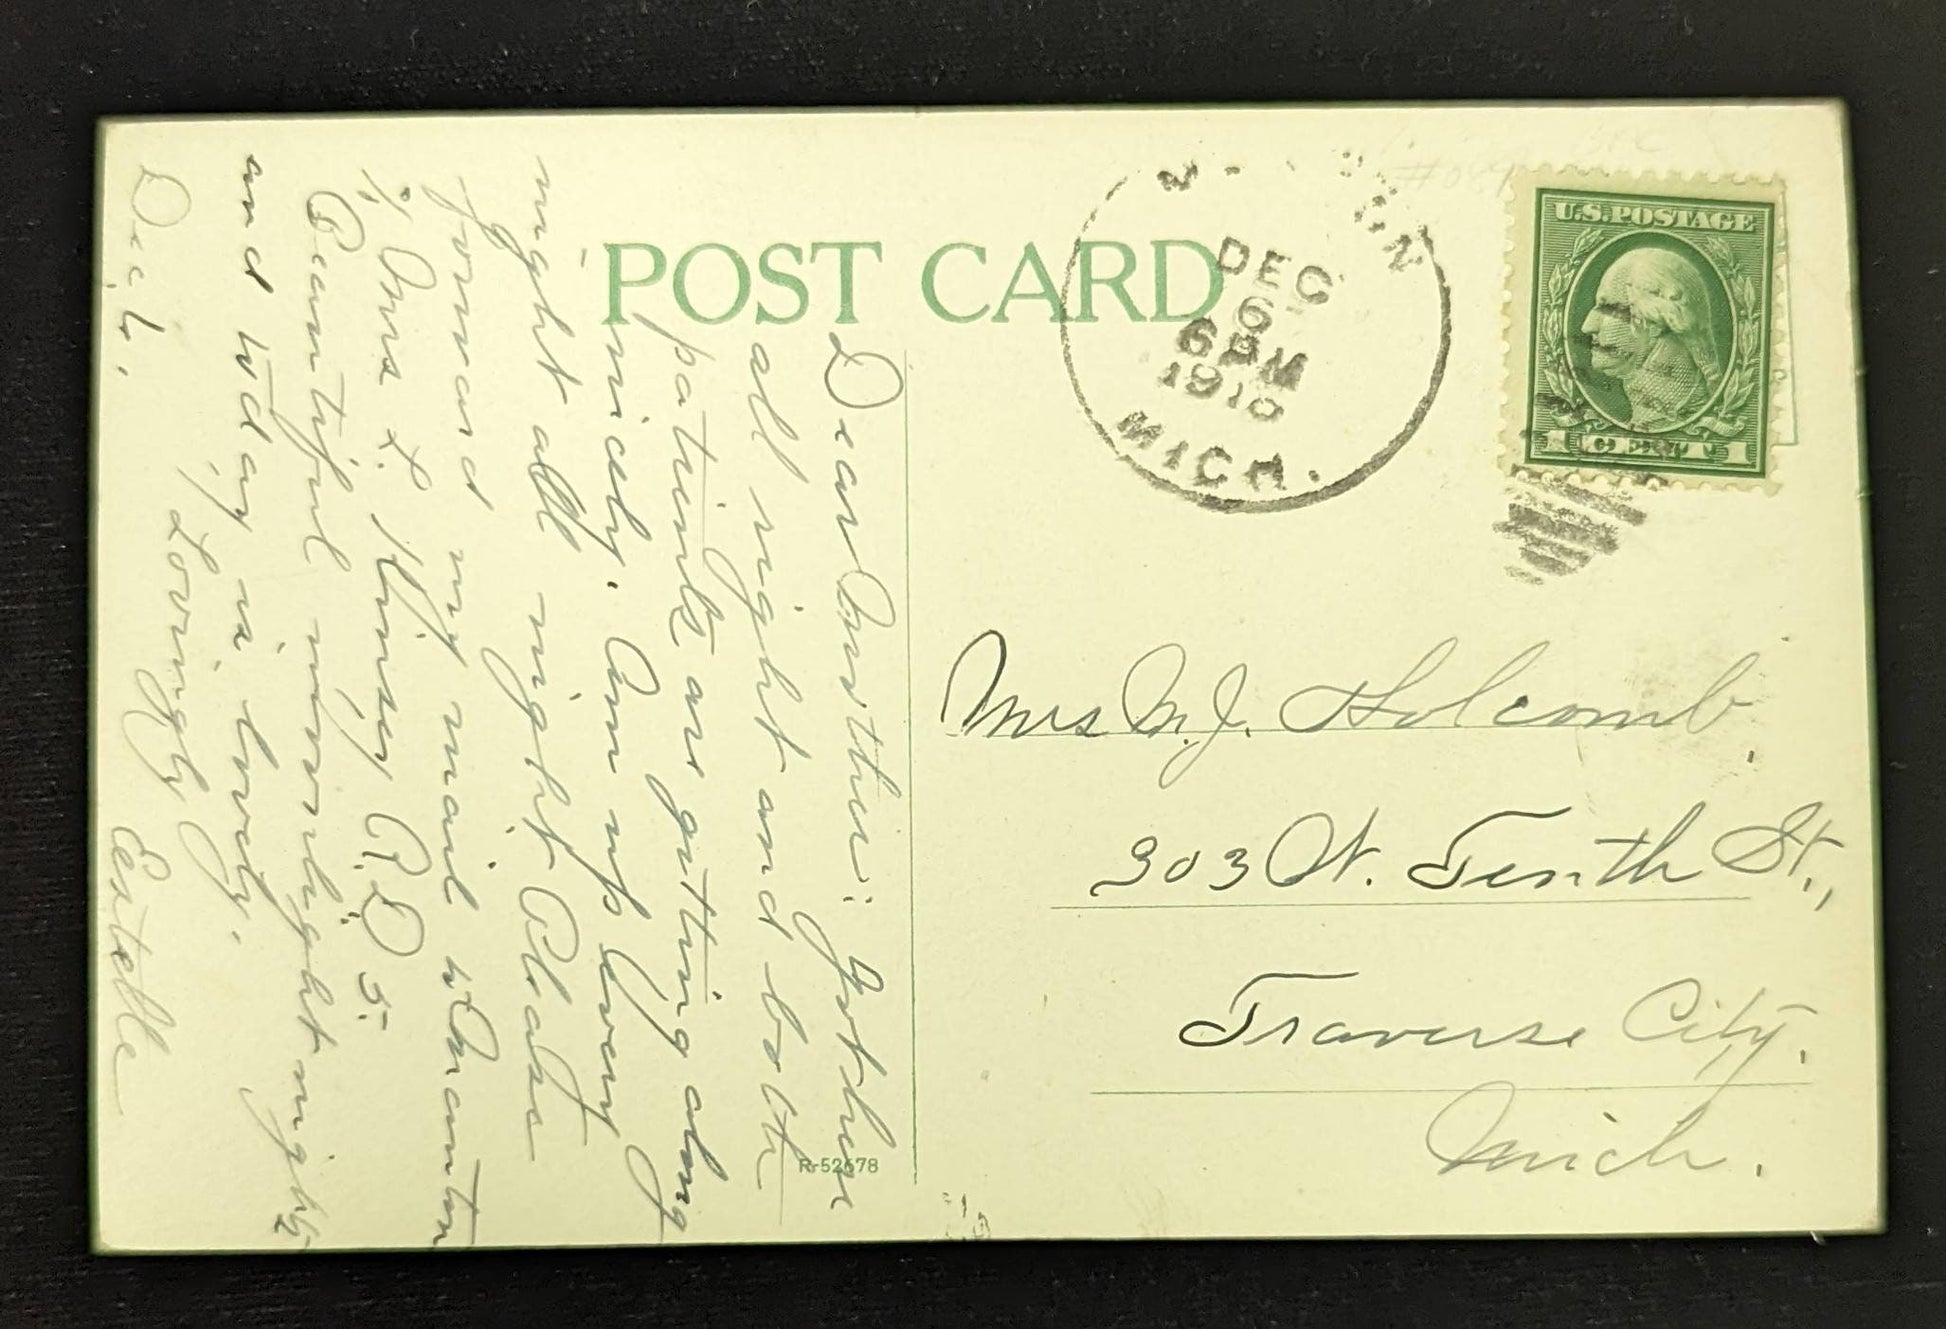 POST CARD
DEC
6
6 PM
1916
MICH.
U.S. POSTAGE
1 CENT 1
Dear Mother: Got here
all right and both
patients are getting along
nicely. Am up every
night all night Please
forward my mail to Manton
% Mrs L. Kinsey R.D 5.
Beautiful moonlight nights
and today is lovely.
Lovingly
Dec 6. Estelle
Mrs M.J. Holcomb.
303 W. Tenth St.,
Traverse City.
Mich.
R-52678